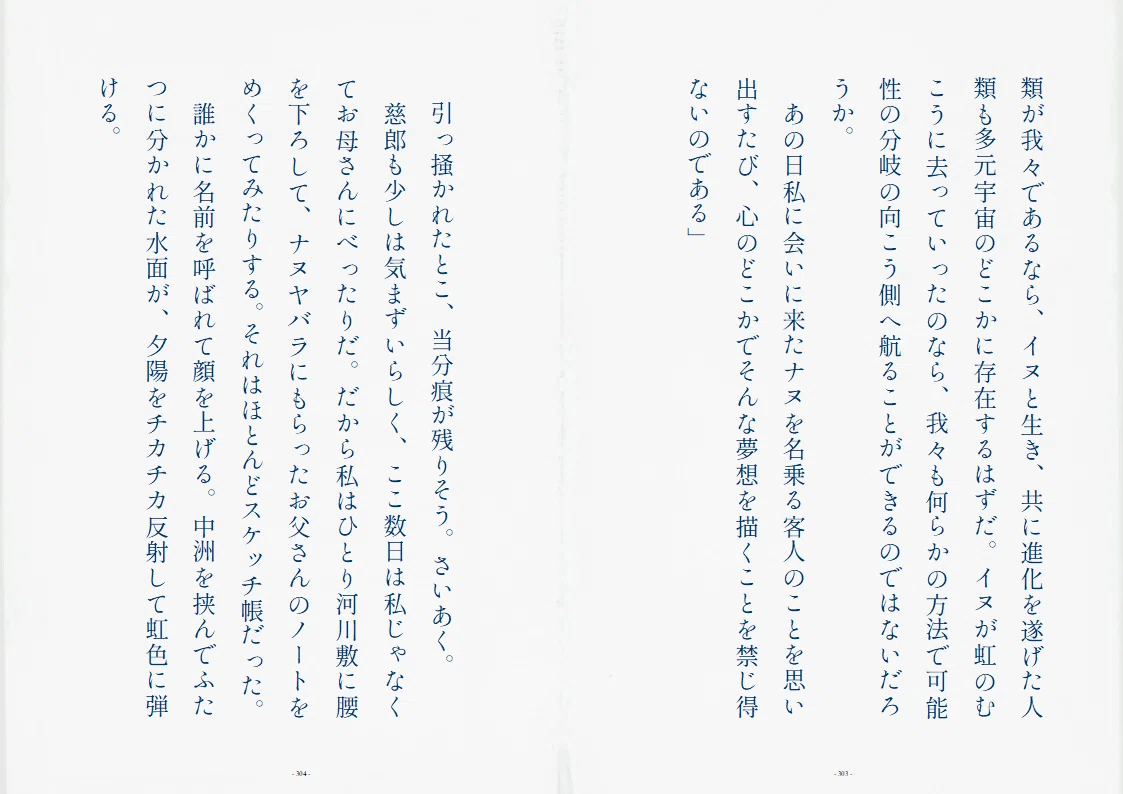 類が我々であるなら、イヌと生き、共に進化を遂げた人
類も多元宇宙のどこかに存在するはずだ。イヌが虹のむ
こうに去っていったのなら、我々も何らかの方法で可能
性の分岐の向こう側へ航ることができるのではないだろ
うか。
　あの日私に会いに来たナヌを名乗る客人のことを思い
出すたび、心のどこかでそんな夢想を描くことを禁じ得
ないのである」
- 303 -
　引っ掻かれたとこ、当分痕が残りそう。さいあく。
　慈郎も少しは気まずいらしく、ここ数日は私じゃなく
てお母さんにべったりだ。だから私はひとり河川敷に腰
を下ろして、ナヌヤバラにもらったお父さんのノートを
めくってみたりする。それはほとんどスケッチ帳だった。
　誰かに名前を呼ばれて顔を上げる。中洲を挟んでふた
つに分かれた水面が、夕陽をチカチカ反射して虹色に弾
ける。
- 304 -